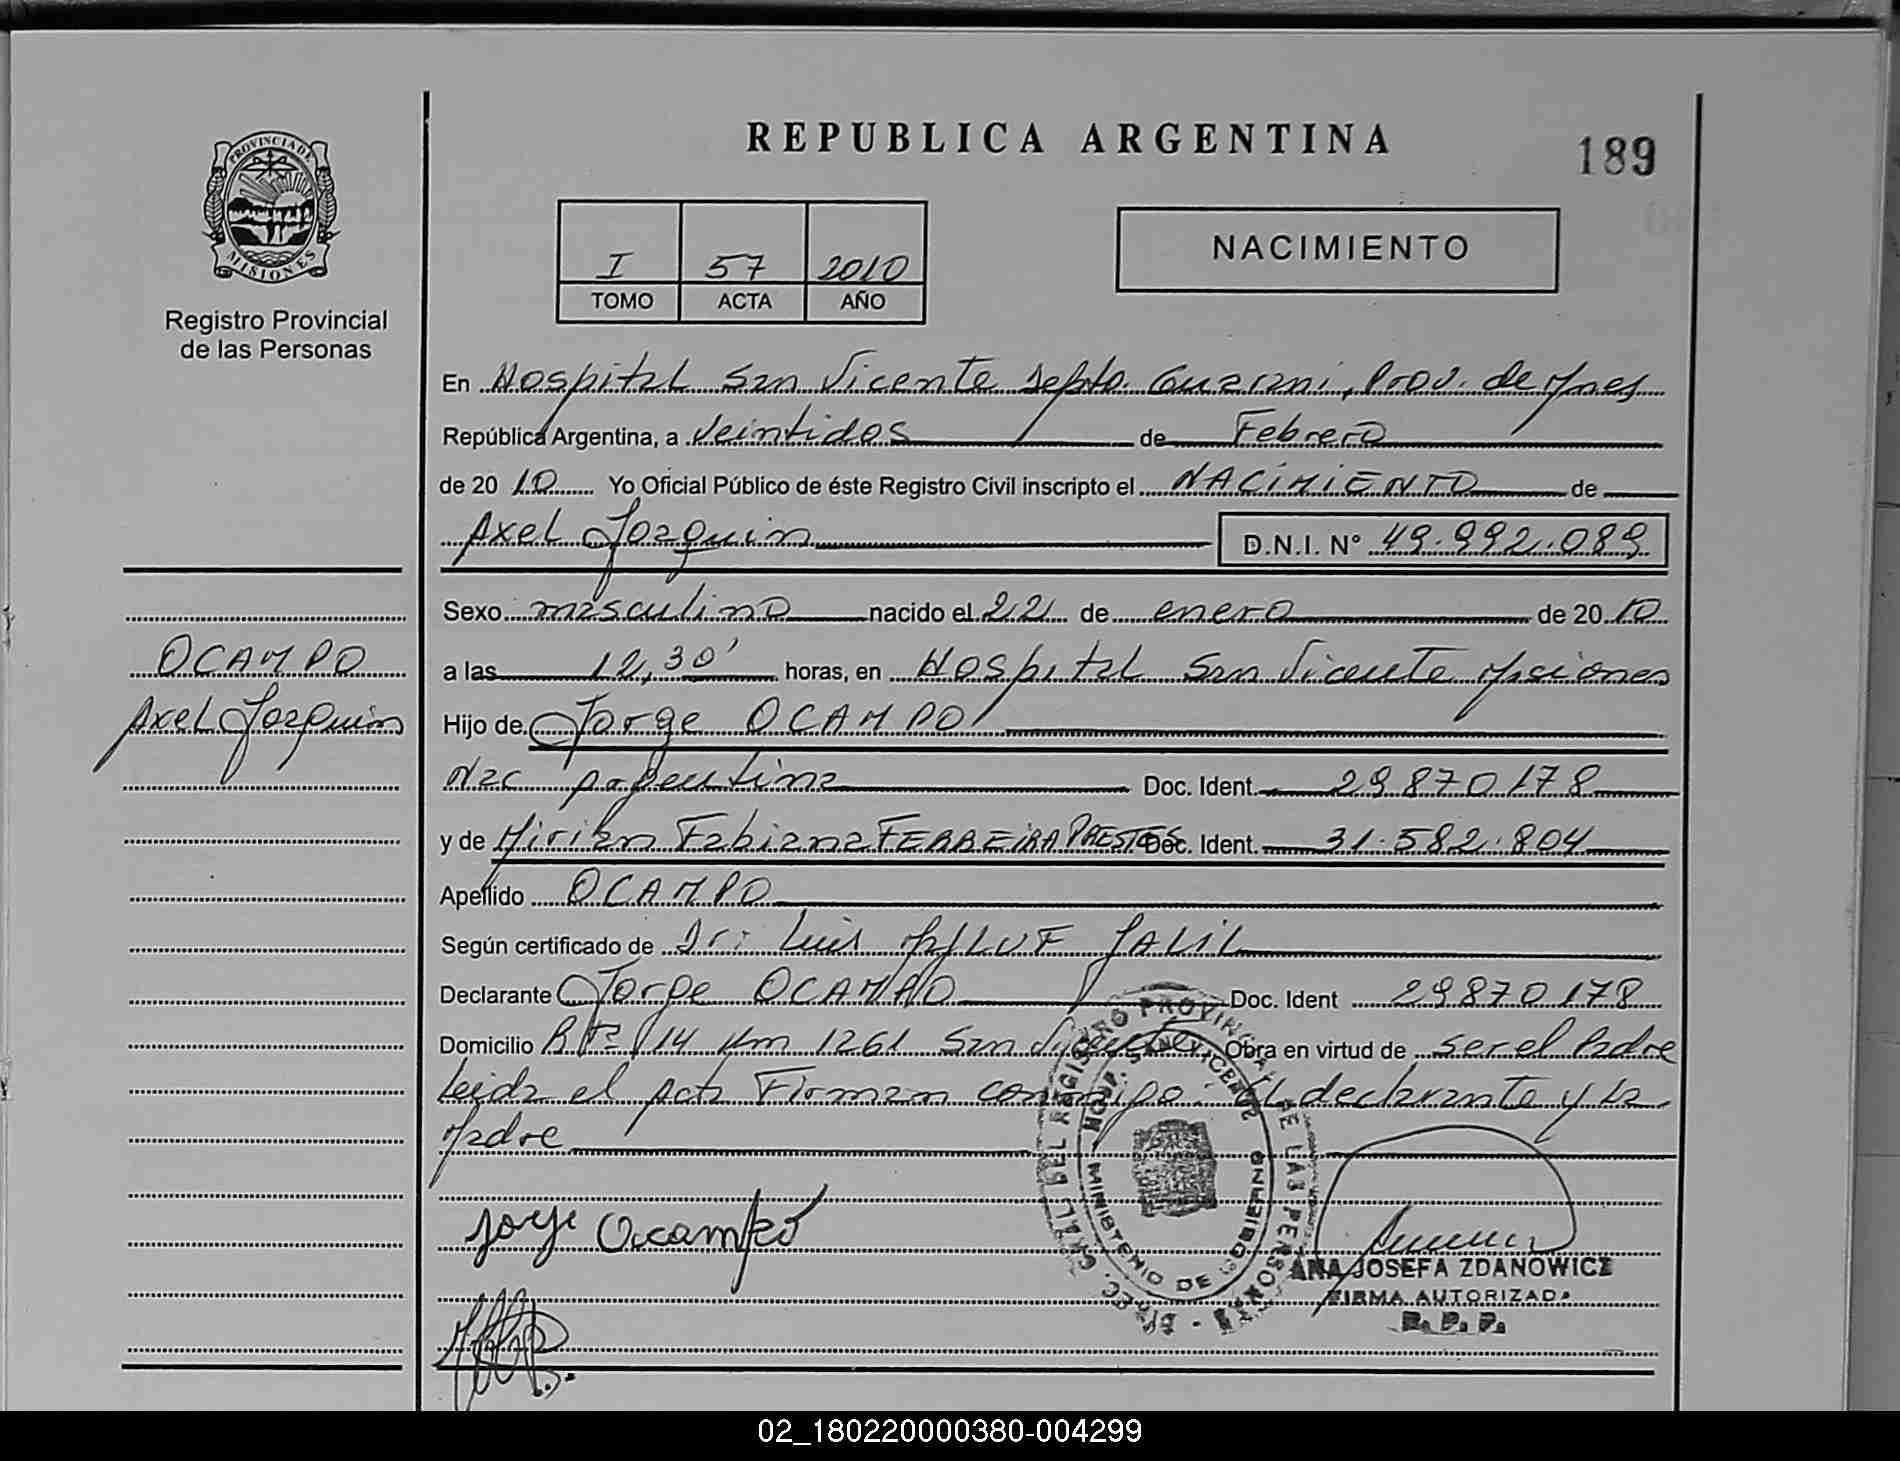 REPUBLICA ARGENTINA
189
PROVINCIA DE
MISIONES
Registro Provincial
de las Personas
I 57 2010
TOMO ACTA AÑO
NACIMIENTO
En Hospital San Vicente Depto. Guarani, Prov. de Mnes
República Argentina, a veintidos de Febrero
de 20 10 Yo Oficial Público de éste Registro Civil inscripto el NACIMIENTO de
Axel Joaquin D.N.I. N° 49.992.089
Sexo masculino nacido el 22 de enero de 20 10
OCAMPO
Axel Joaquin
a las 12,30' horas, en Hospital San Vicente Misiones
Hijo de Jorge OCAMPO
Nac Argentina Doc. Ident. 29870178
y de Mirian Fabiana FERREIRA PRESTES Doc. Ident. 31.582.804
Apellido OCAMPO
Según certificado de Dr: Luis JALIL
Declarante Jorge OCAMPO Doc. Ident 29870178
Domicilio R N 14 Km 1261 San Vicente Obra en virtud de ser el Padre
Leida el acta Firman conmigo, el declarante y la
Madre
Jorge Ocampo
DIREC. GRAL DEL REGISTRO PROVINCIAL DE LAS PERSONAS
HOSP. SAN VICENTE
MINISTERIO DE GOBIERNO
ANA JOSEFA ZDANOWICZ
FIRMA AUTORIZADA
R. P. P.
02_180220000380-004299